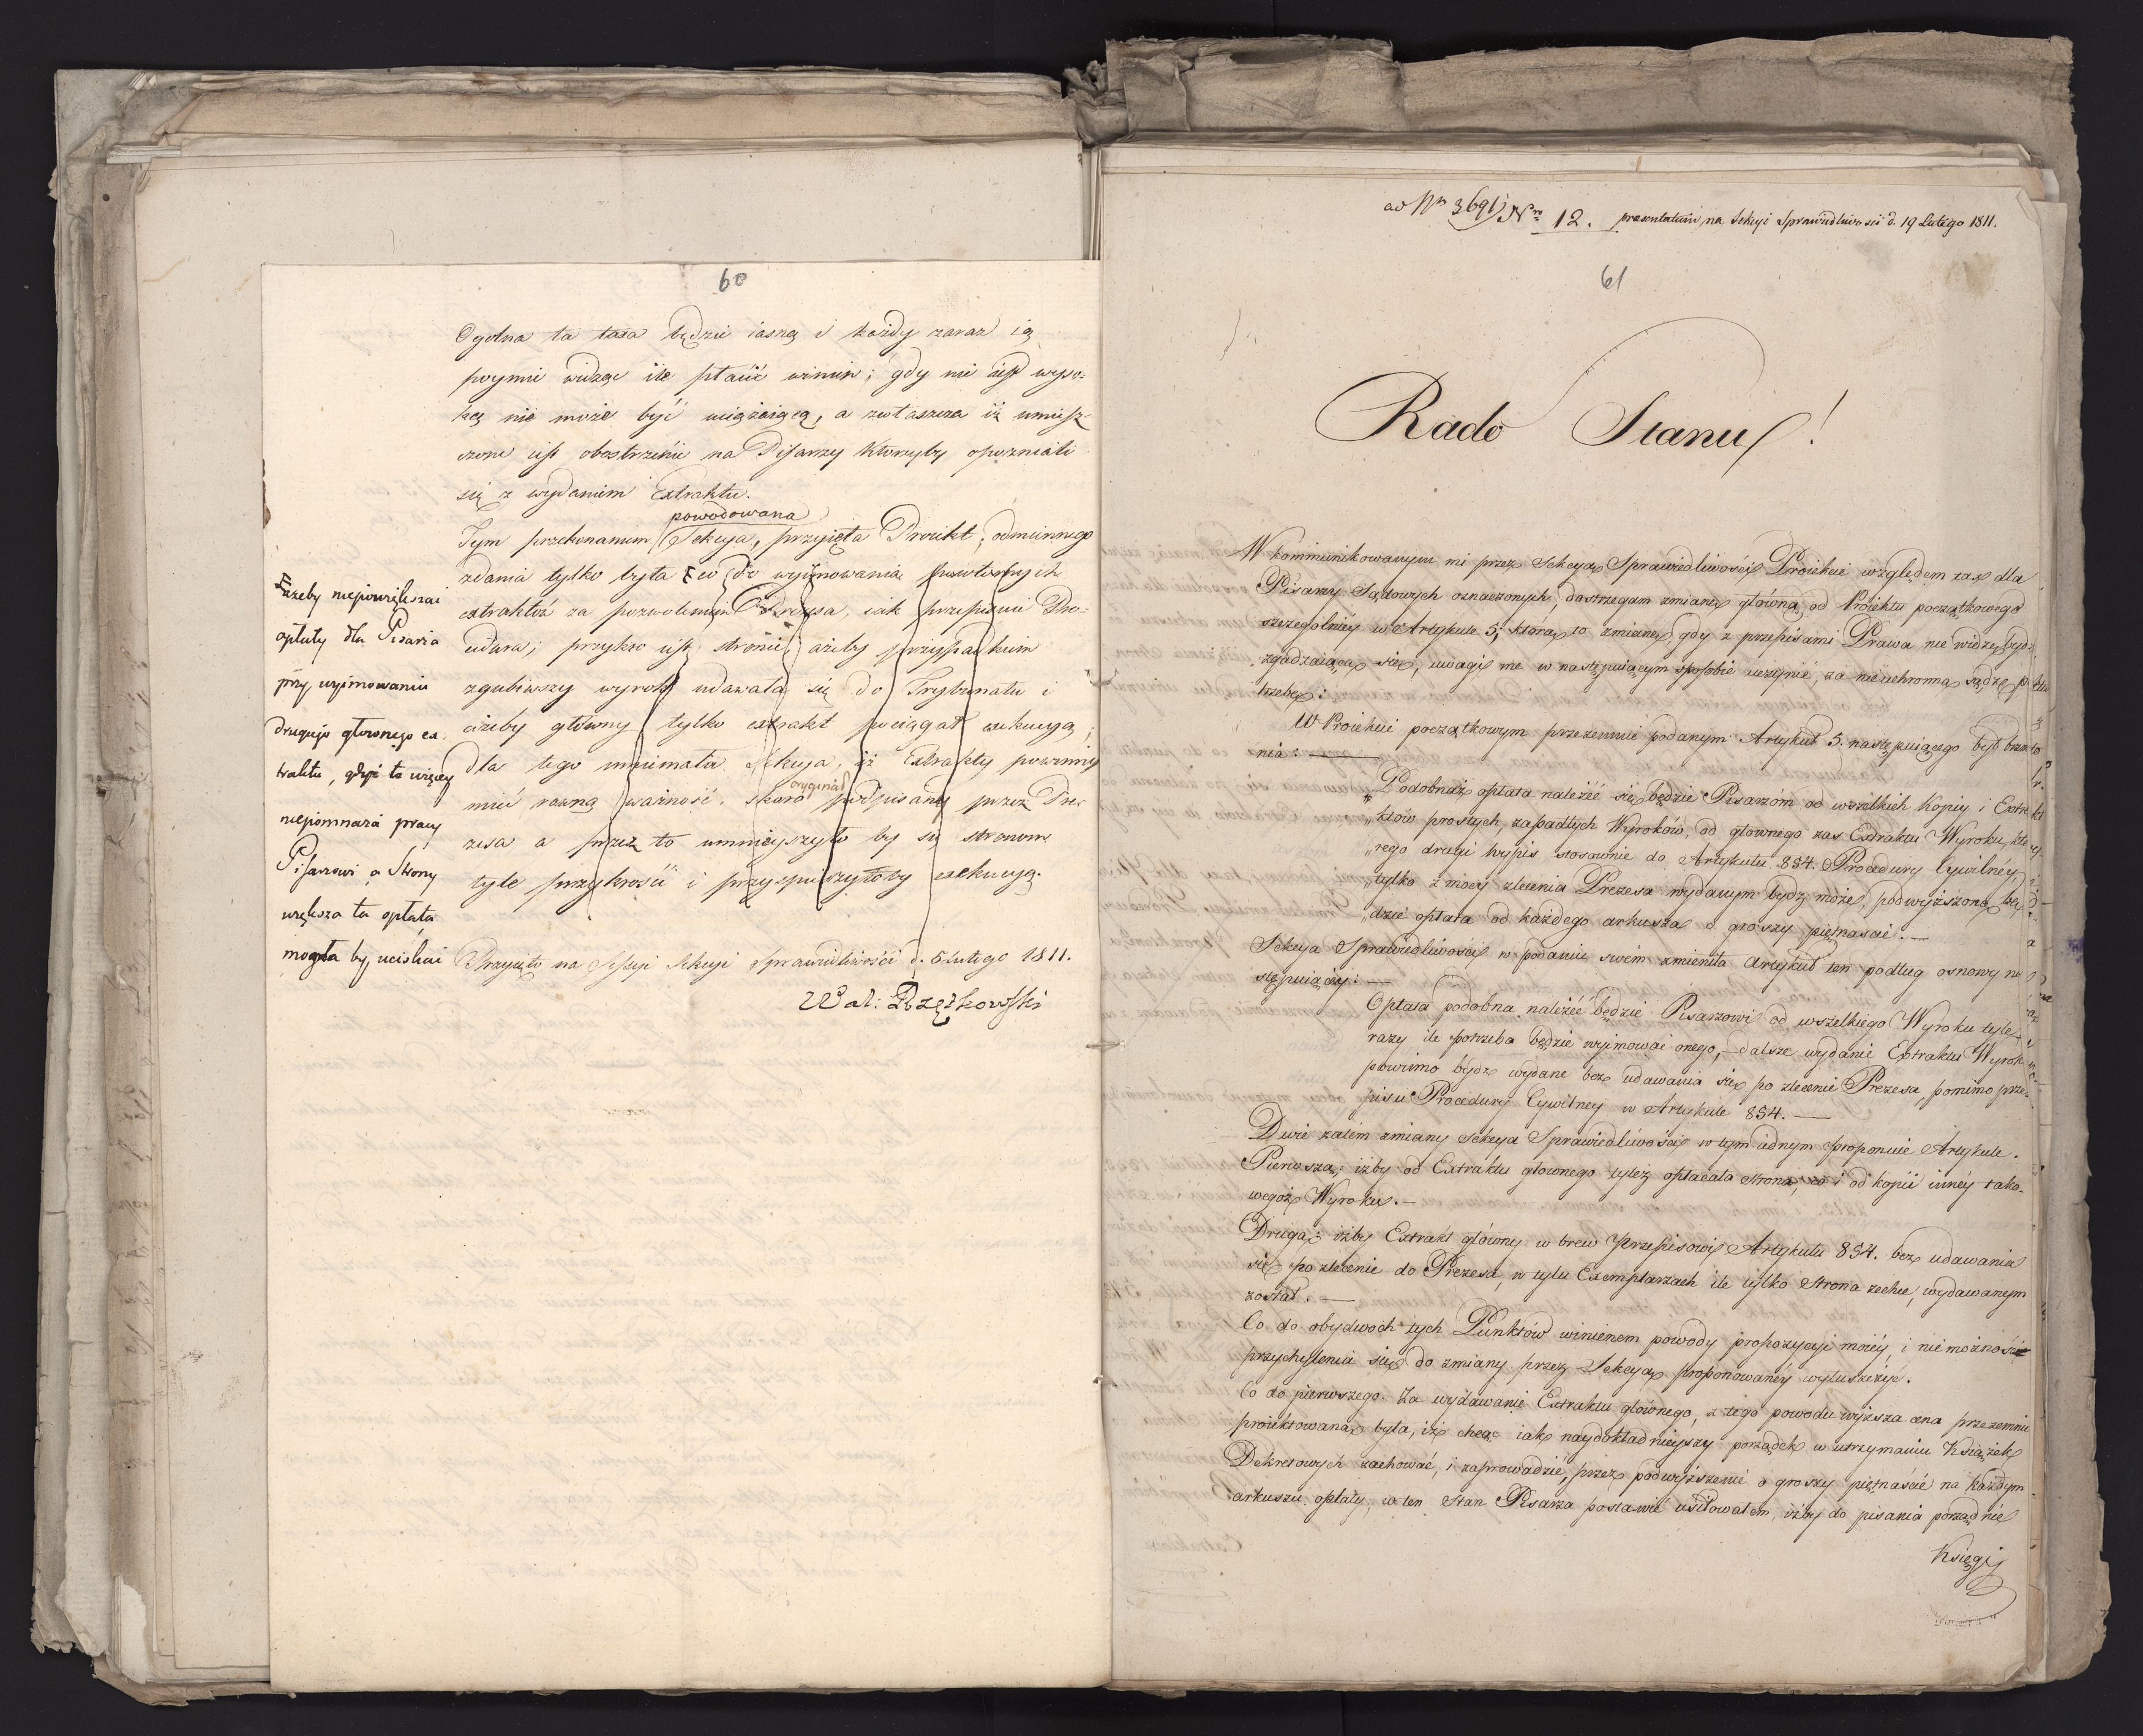 60
Ogolna ta taxa będzie iasną i każdy zaraz ią
poymie widząc ile płacić winien; gdy nie iest wyso-
ką nie może być uciążaiącą, a zwłaszcza iż umiesz-
czone iest obostrzenie na Pisarzy którzyby opozniali
się z wydaniem Extraktu.
powodowana
Tym przekonaniem Sekcya, przyięła Proiekt, odmiennego
zdania tylko była co do wyimowania powtornych
extraktów za pozwoleniem Prezesa, iak przepisuie Pro-
cedura; przykro iest stronie, ażeby przypadkiem
zgubiwszy wyrok udawała się do Trybunału i
ażeby główny tylko extrakt pociągał exekucyą;
dla tego mniemała Sekcya, iż Extrakty powinny
oryginał
mieć rowną ważność, skoro podpisany przez Pre-
zesa a przez to umnieyszyło by się stronom
tyle przykrości i przyspieszyłoby exekucyą.
ażeby niepowiększać
opłaty dla Pisarza
przy wyimowaniu
drugiego głownego ex-
traktu, gdyż to więcey
niepomnaża pracy
Pisarzowi a Strony
większa ta opłata
mogła by uciskać
Przyięto na Sessyi Sekcyi Sprawiedliwości d. 5 Lutego 1811.
Wal: Rzętkowski
ad Nr 3691 Nro 12. praesentatum na Sekcyi Sprawiedliwości d. 19 Lutego 1811.
61
Rado Stanu!
W kommunikowanym mi przez Sekcyą Sprawiedliwości Proiekcie względem tax dla
Pisarzy Sądowych oznaczonych, dostrzegam zmianę główną od Proiektu początkowego
szczególniey w Artykule 5; którą to zmianę, gdy z przepisami Prawa nie widzę bydź
zgadzaiącą się, uwagi me w następuiącym sposobie uczynić, za nieuchronną sądzę po
trzebę:
W Proiekcie początkowym przezemnie podanym Artykuł 5. następuiącego był brzmie
nia:
„Podobnaż opłata należéć się będzie Pisarzom od wszelkich kopiy i Extra
„któw prostych, zapadłych Wyroków, od głownego zas Extraktu Wyroku, któ
„rego drugi wypis stosownie do Artykułu 854. Procedury Cywilnéy,
„tylko z mocy zlecenia Prezesa wydanym bydź może, podwyższoną bę
„dzie opłata od każdego arkusza o groszy piętnaście. —
Sekcya Sprawiedliwości w podaniu swém zmieniła artykuł ten podług osnowy na
stępuiącéy: —
Opłata podobna należéć będzie Pisarzowi od wszelkiego Wyroku tyle
razy ile potrzeba będzie wyimować onego, — dalsze wydanie Extraktu Wyrok
powinno bydź wydane bez udawania się po zlecenie Prezesa, pomimo prze-
pisu Procedury Cywilney w Artykule 854. —
Dwie zatém zmiany Sekcya Sprawiedliwości w tym iednym proponuie Artykule.
Pierwszą; iżby od Extraktu głownego tyleż opłacała strona, co i od kopii innéy tako-
wegoż Wyroku. —
Drugą; iżby Extrakt główny w brew przepisowi Artykułu 854. bez udawania
się po zlecenie do Prezesa, w tylu Exemplarzach ile tylko Strona zechce, wydawanym
został. —
Co do obydwoch tych Punktów winienem powody propozycyi moiéy, i niemożność
przychylenia się do zmiany przez Sekcyą proponowanéy wyłuszczyć.
Co do pierwszego. Za wydawanie Extraktu głównego, z tego powodu wyższa cena przezemnie
proiektowana była, iż chcąc iak naydokładnieyszy porządek w utrzymaniu Książek
Dekretowych zachować, i zaprowadzić, przez podwyższenie o groszy piętnaście na każdym
arkuszu opłaty, w ten stan Pisarza postawić usiłowałem, iżby do pisania porządnie
Księgi